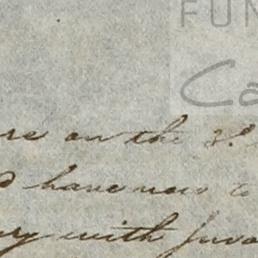 FUN
Ca
re on the 3d
d have now to
ry with Juva